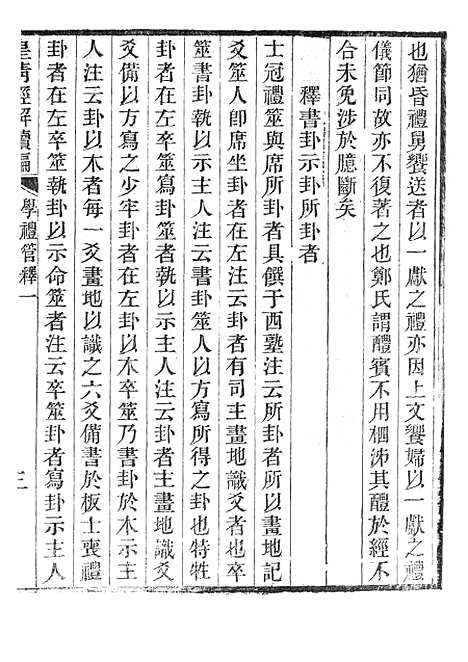 也猶昏禮舅饗送者以一獻之禮亦因上文饗婦以一獻之禮
儀節同故亦不復著之也鄭氏謂醴賓不用柶泲其醴於經不
合未免涉於臆斷矣
釋書卦示卦所卦者
士冠禮筮與席所卦者具饌于西塾注云所卦者所以畫地記
爻筮人卽席坐卦者在左注云卦者有司主畫地識爻者也卒
筮書卦執以示主人注云書卦筮人以方寫所得之卦也特牲
卦者在左卒筮寫卦筮者執以示主人注云卦者主畫地識爻
爻備以方寫之少牢卦者在左卦以木卒筮乃書卦於木示主
人注云卦以木者每一爻畫地以識之六爻備書於板士喪禮
卦者在左卒筮執卦以示命筮者注云卒筮卦者寫卦示主人
皇清經解續編
學禮管釋一
三